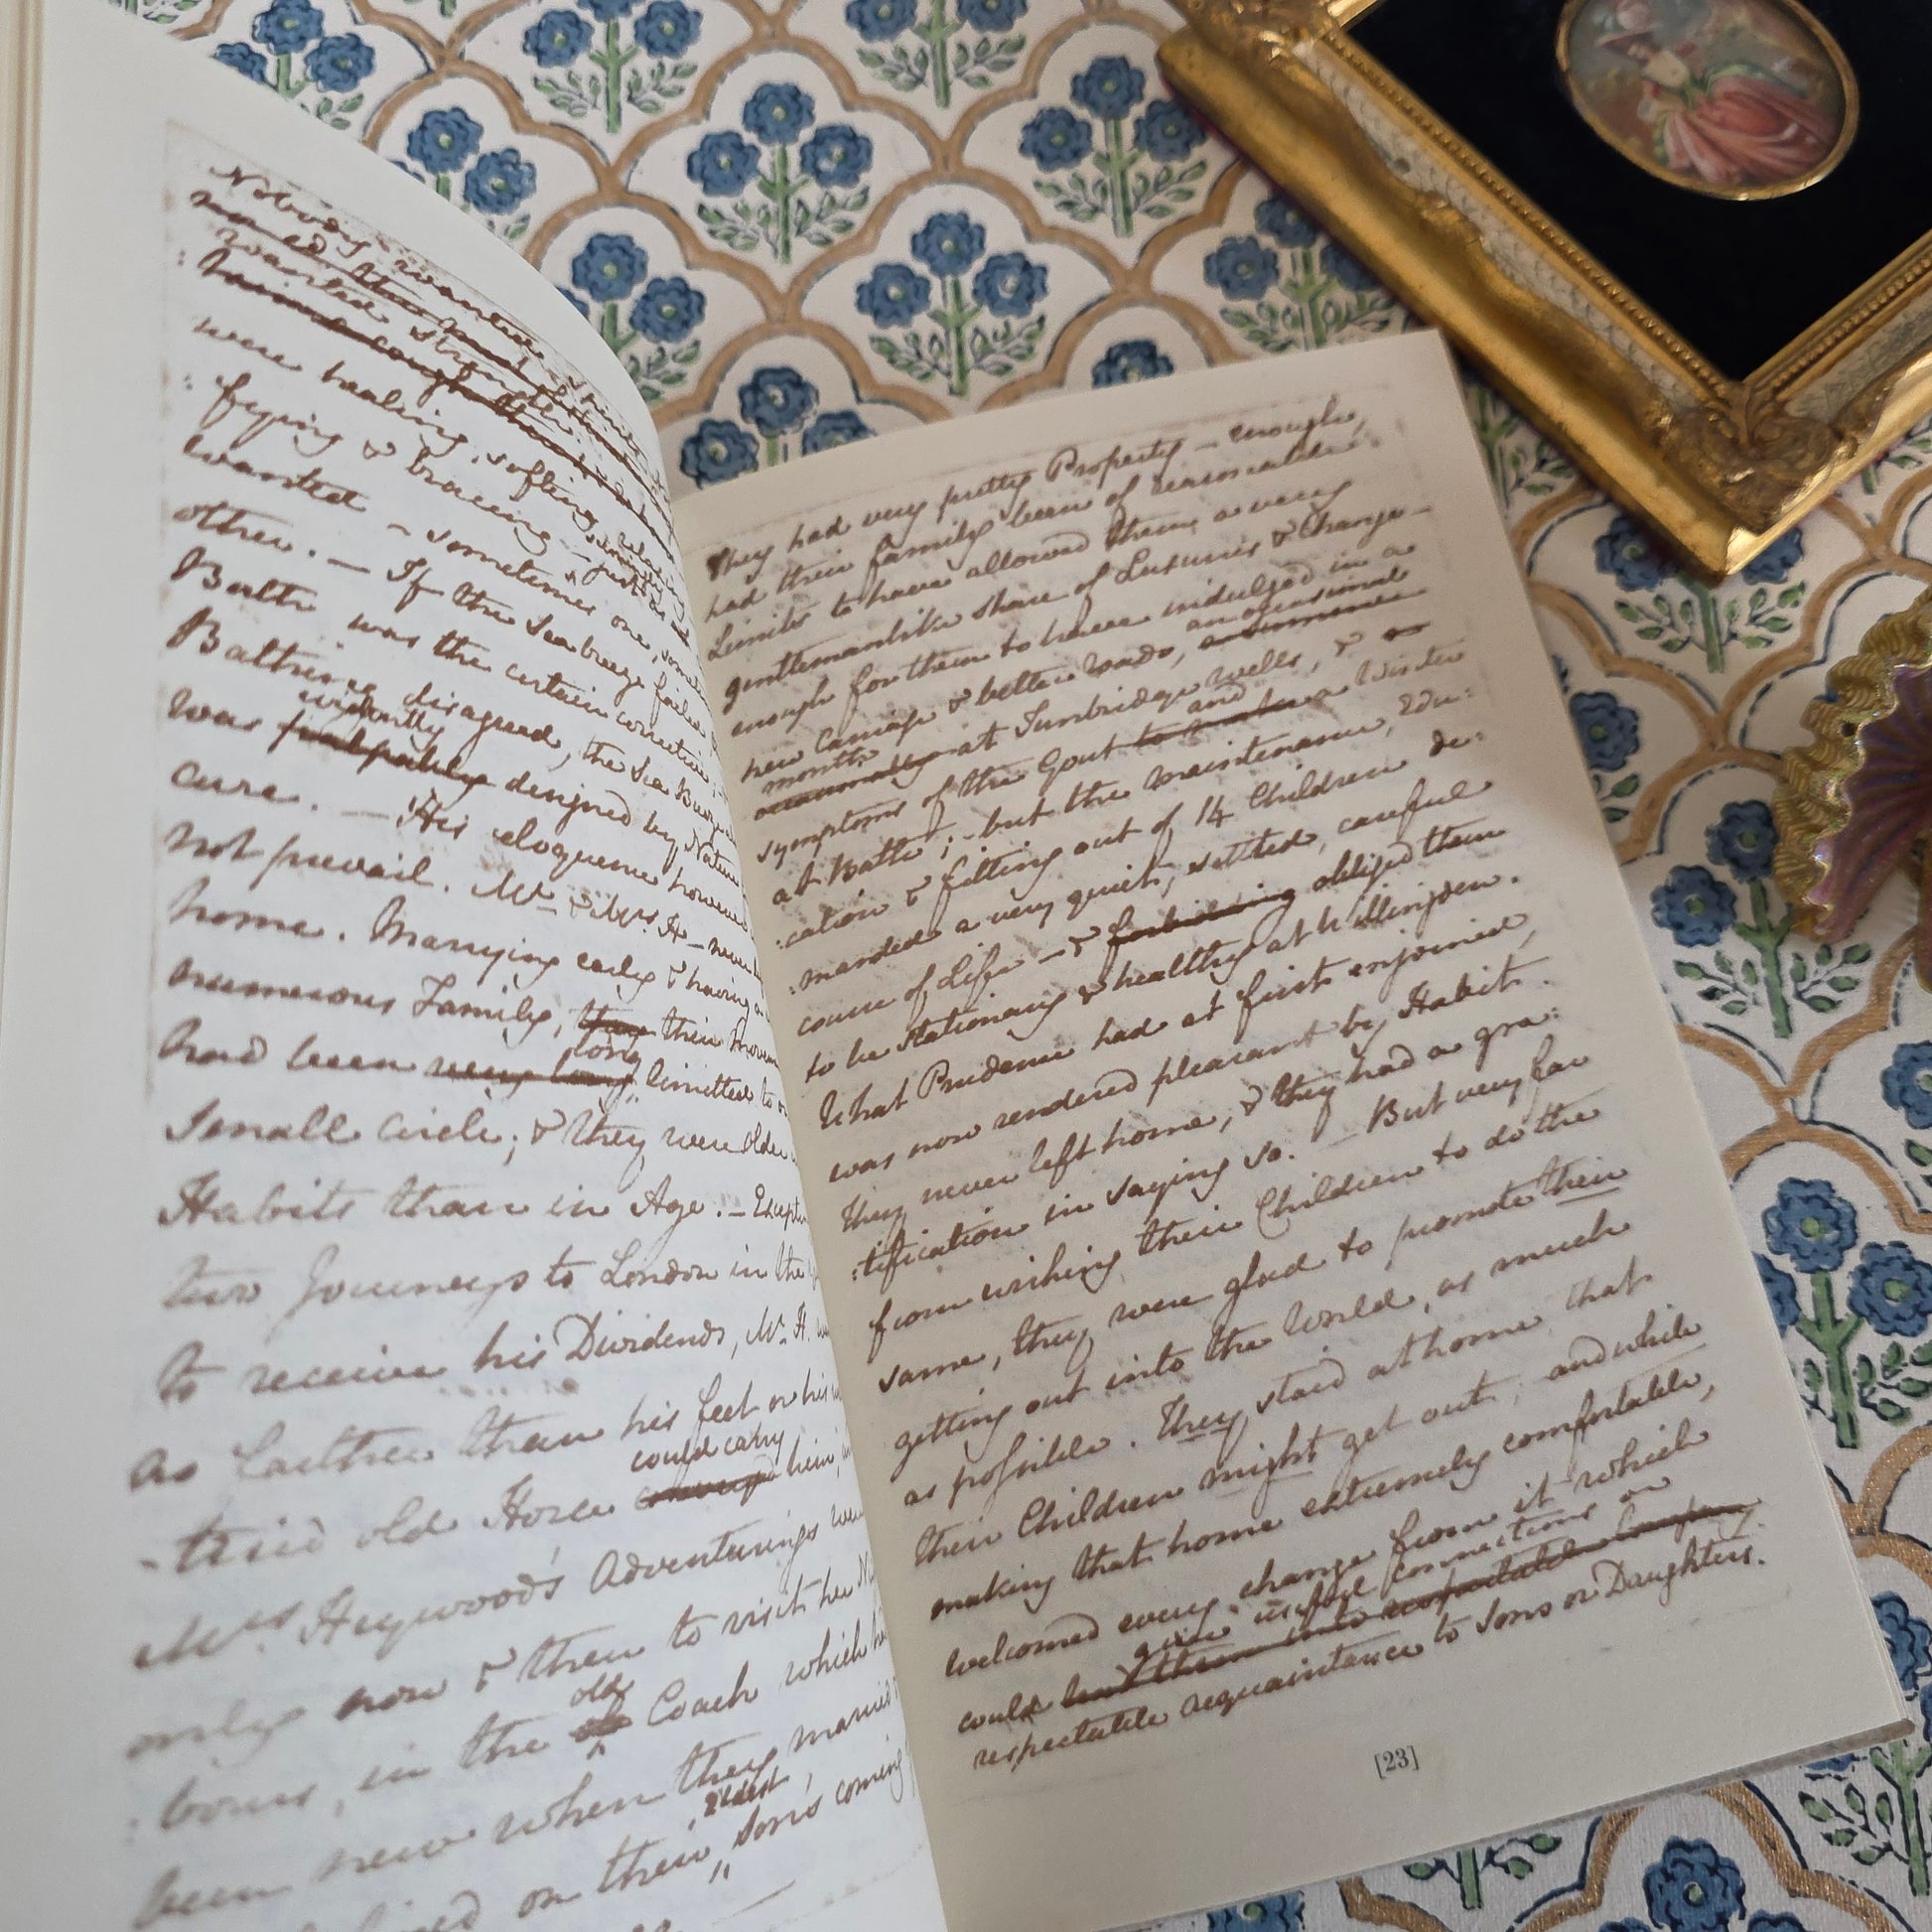 Nobody wanted
wanted strength
were healing, softing, relaxing
fortifying & bracing — seemingly just as
wanted — sometimes one, some
other. — If the Sea breeze failed,
Bath was the certain corrective;
Bathing disagreed, the Sea Breeze
evidently
was palpably designed by Nature
cure. — His eloquence however
not prevail. Mr. & Mrs. H— never
home. Marrying early & having a
numerous Family, they their
long
had been very long limitted to
small circle; & they were older
Habits than in Age. — Except
two Journeys to London in the
to receive his Dividends, Mr. H.
no farther than his feet or his
could carry
-tried old Horse conveyed him,
Mrs. Heywood's Adventurings were
only now & then to visit her
old
:bours, in the Coach which
been new when they married
eldest
on their Sons coming
They had very pretty Property — enough,
had their family been of reasonable
Limits to have allowed them a very
gentlemanlike share of Luxuries & Change —
enough for them to have indulged in a
an occasional
new Carriage & better roads,
month
occasionally at Tunbridge Wells, & or
and
symptoms of the Gout to make a Winter
at Bath; — but the maintenance, Edu:
:cation & fitting out of 14 Children de:
:manded a very quiet, settled, careful
course of Life — & forbidding obliged them
to be stationary & healthy at Willingden.
What Prudence had at first enjoined,
was now rendered pleasant by Habit.
They never left home, & they had a gra:
:tification in saying so. — But very far
from wishing their Children to do the
same, they were glad to promote their
getting out into the World, as much
as possible. They staid at home, that
their Children might get out; and while
making that home extremely comfortable,
welcomed every change from it which
give useful connections or
could lead them into respectable Company
respectable acquaintance to Sons or Daughters.
[23]